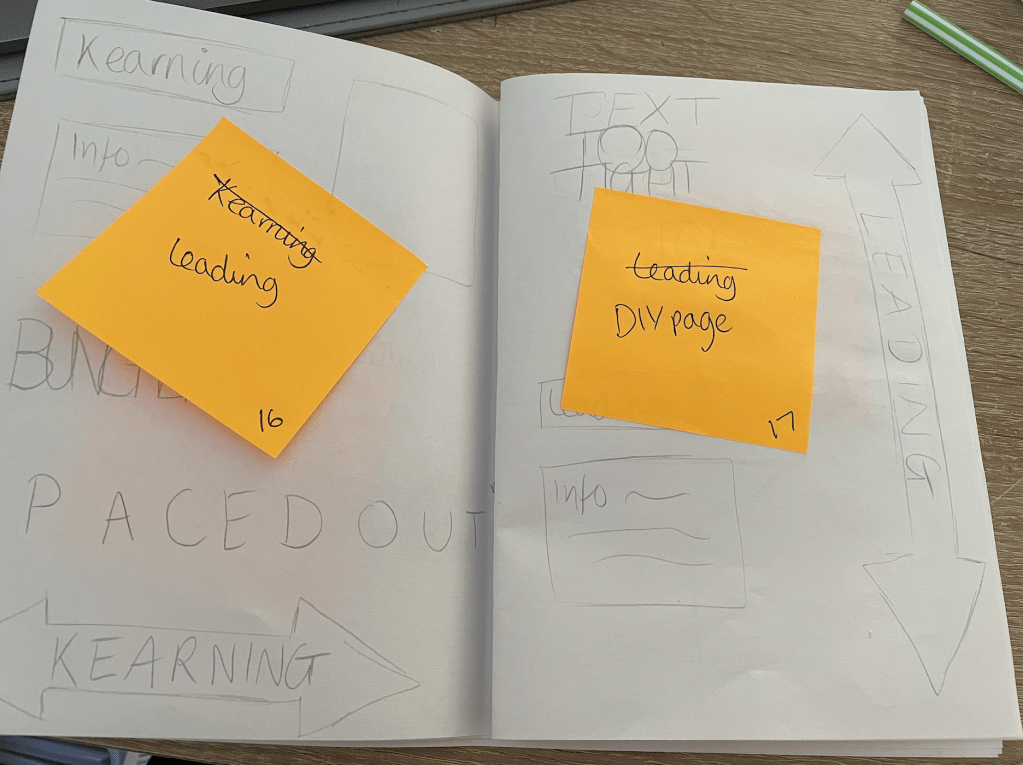 Kearning
Info
Kearning
Leading
16
PACED OUT
KEARNING
TEXT
TOO
Leading
DIY page
17
Info
LEADING